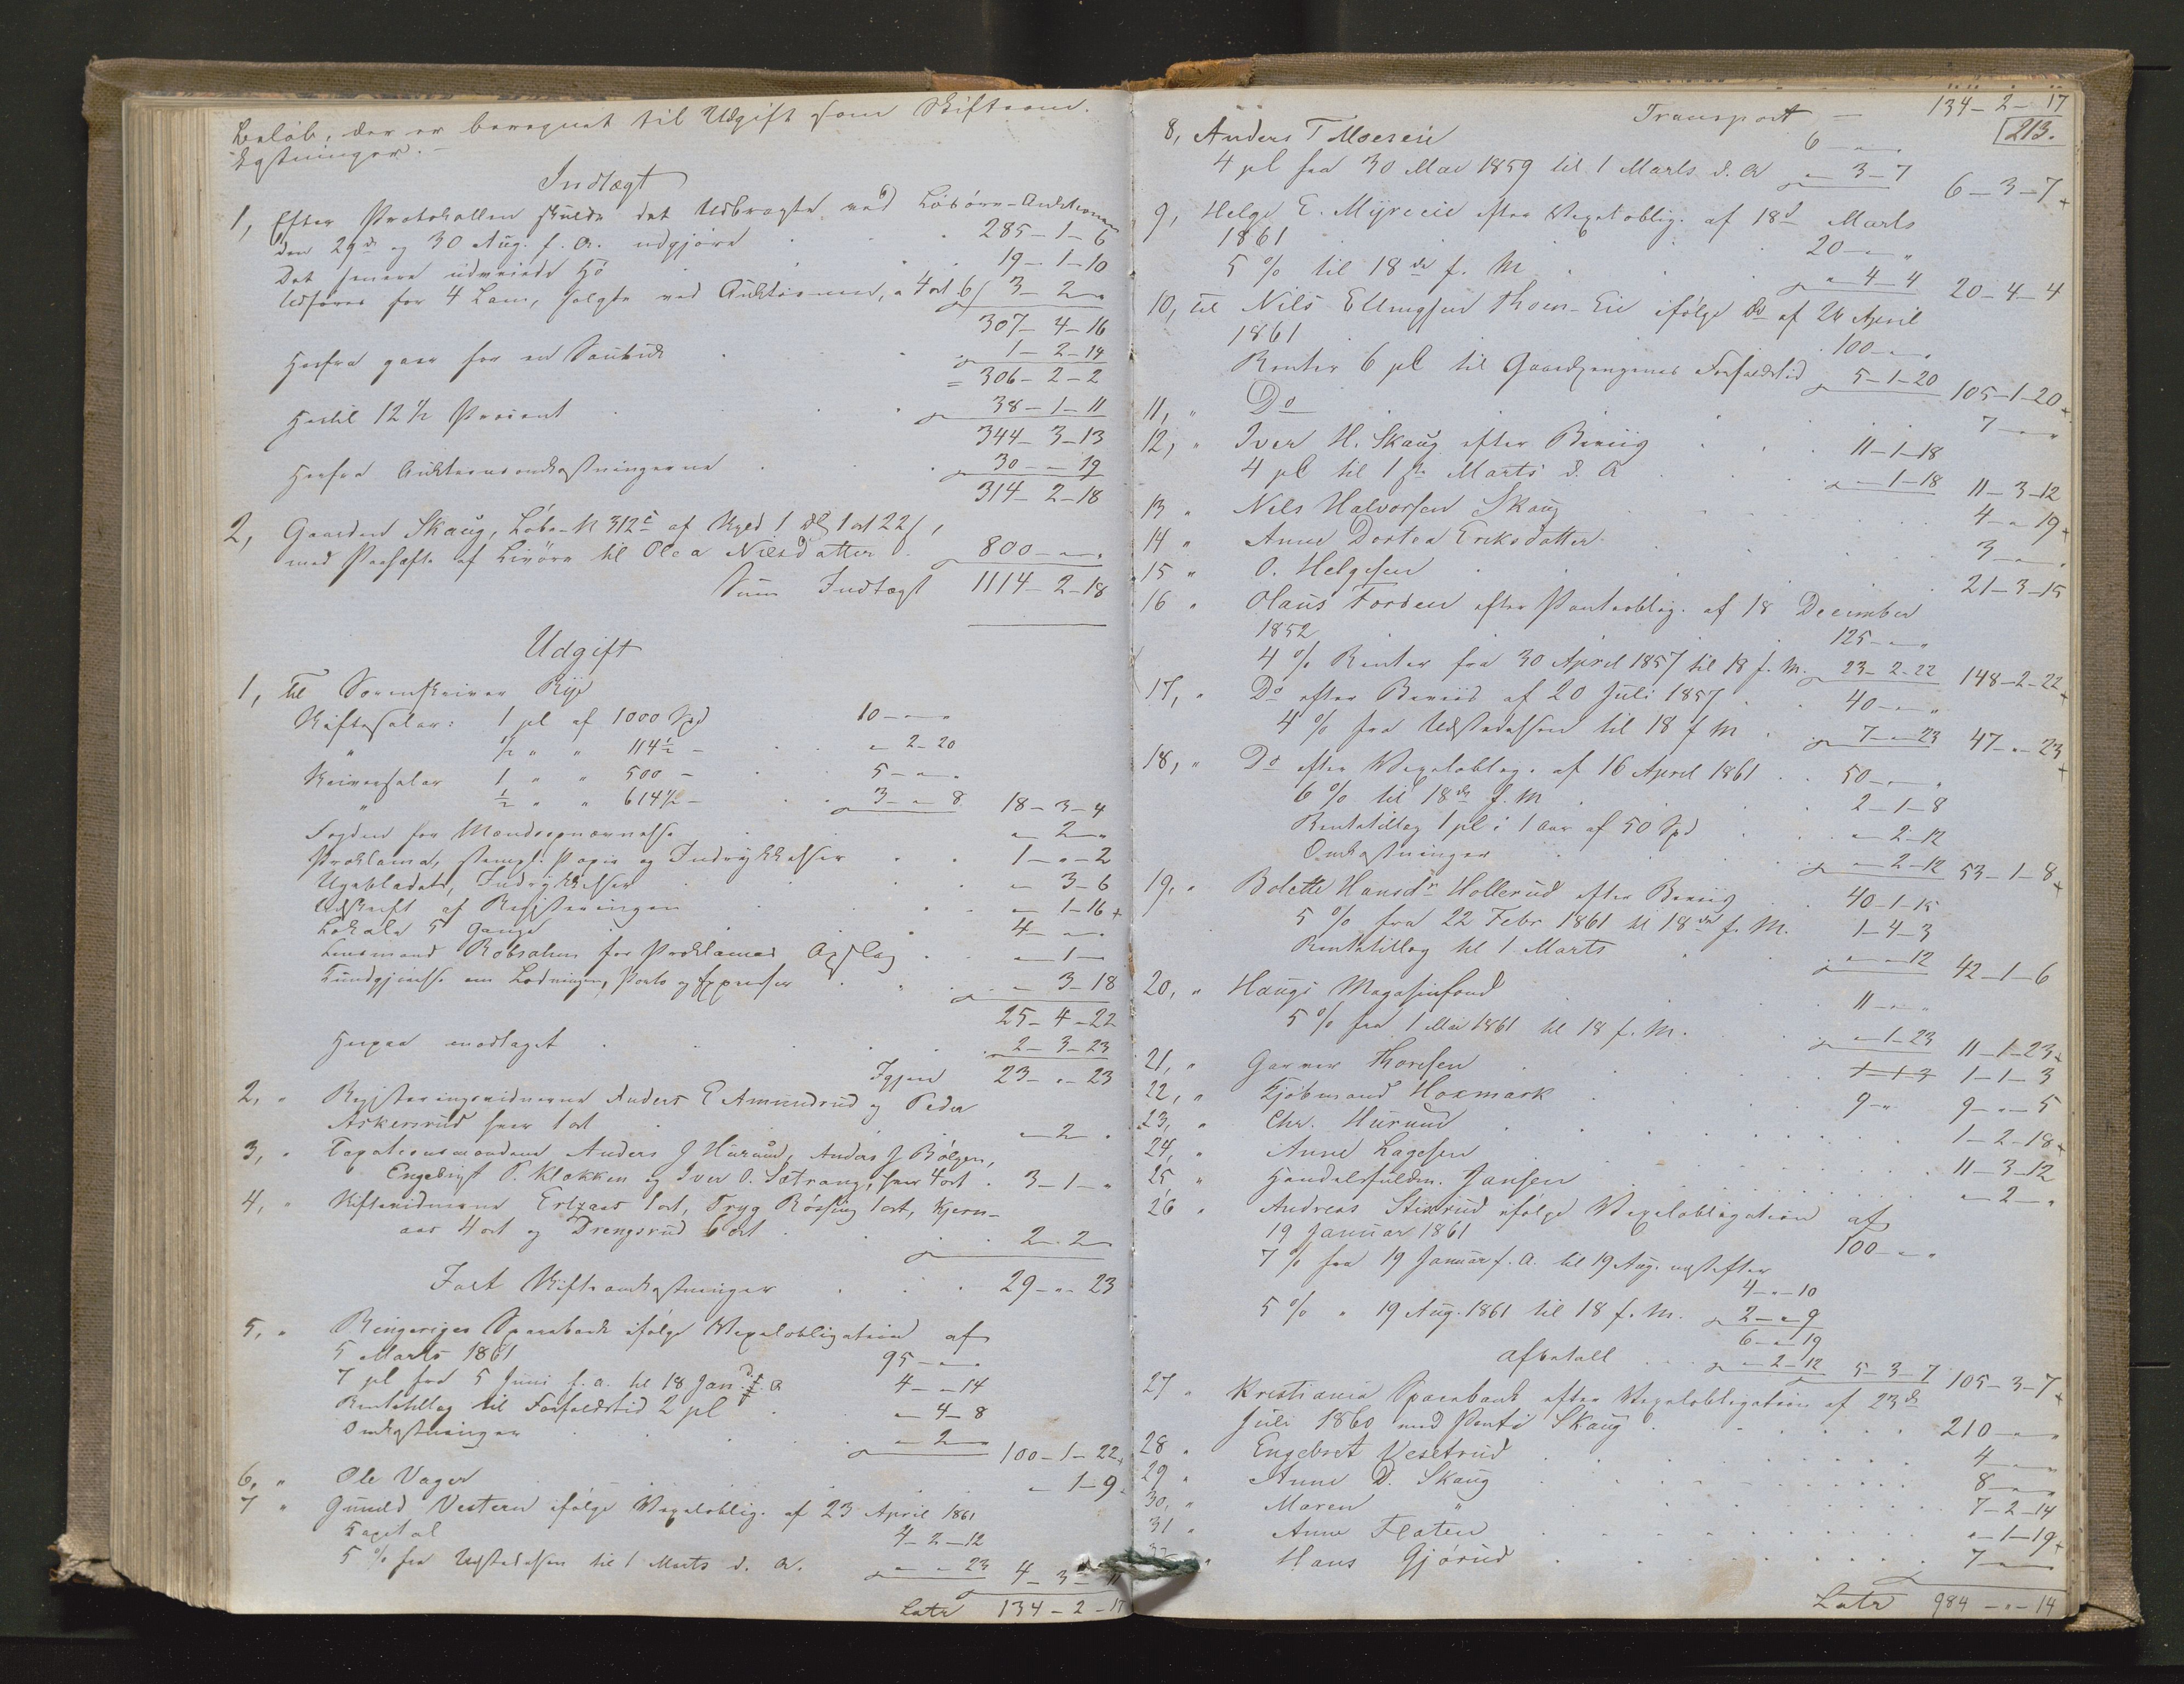 Beløb, der er beregnet til Udgift som Skifteom-
kostninger. –
Indtægt
1, Efter Protokollen skulde det Udbragte ved Løsøre-Auktionen
den 29de og 30 Aug. f. A. udgjøre 285-1-6
Det senere udveiede Hø 19-1-10
Udføres for 4 Lam, solgte ved Auktionen, a 4 ort 6 s 3-2-"
307-4-16
Herfra gaar for en Saubuk 1-2-14
= 306-2-2
Hertil 12 1/2 Procent 38-1-11
344-3-13
Herfra Auktionsomkostningerne 30-"-19
314-2-18
2, Gaarden Skaug, Løbe-N 312c af Skyld 1 Dlr 1 ort 22 s,
med Paahæfte af Livøre til Olea Nilsdatter 800-"-"
Sum Indtægt 1114-2-18
Udgift
1, Til Sorenskriver Rye
Skiftesalær: 1 pCt af 1000 Spd 10-"-"
" 1/2 " " 114 1/2 - "-2-20
Skriversalær 1 " " 500 - 5-"-"
" 1/2 " " 614 1/2 - 3-"-8 18-3-4
Fogden for Mandsopnævnelse "-2-"
Proklama, stempl. Papir og Indrykkelser 1-"-2
Ugebladets, Indrykkelser "-3-6
Udskrift af Registeringen "-1-16+
Lokale 5 Gange 4-"-"
Lensmand Robsahm for Proklamas Opslag "-1-
Kundgjørelse om Lodningen, Porto og Expenser "-3-18
25-4-22
Herpaa modtaget 2-3-23
Igjen 23-"-23
2, " Registeringsvidnerne Anders E Amundrud og Peder
Askersrud hver 1 ort "-2-"
3, " Taxationsmændene Anders J Hurum, Anders J Bølgen,
Engebrigt P. Klækken og Iver O. Sætrang, hver 4 ort 3-1-"
4, " Skiftevidnerne 1 ort, Tryg Røssing 1 ort, Kjern-
aas 4 ort og Drengsrud 6 ort 2-2
Fort Skifteomkostninger 29-"-23
5, " Ringeriges Sparebank ifølge Vexelobligation af
5 Marts 1861 95-"-"
7 pCt fra 5 Juni f. a. til 18 Jan. d. A 4-"-14
Rentetillæg til Forfaldstid 2 pCt "-4-8
Omkostninger "-2- 100-1-22+
6, " Ole Vager "-1-9
7 " Gunild Vestern ifølge Vexeloblig. af 23 April 1861
Capital 4-2-12
5 % fra Udstedelsen til 1 Marts d. A. "-"-23 4-3-11
Latr 134-2-17
Transport – 134-2-17
213.
8, Anders T Moeseie 6-"-"
4 pCt fra 30 Mai 1859 til 1 Marts d. A "-3-7 6-3-7+
9, Helge E. Myreeie efter Vexeloblig. af 18d Marts
1861 20-"-"
5 % til 18de f. M "-4-4 20-4-4
10, til Nils Ellingsen Thoen-Eie ifølge do af 24 April
1861 100-"-"
Renter 6 pCt til Gaardpengenes Forfaldstid 5-1-20 105-1-20+
11, " Do 7-"-"
12, " Iver H. Skaug efter Beviis 11-1-18
4 pCt til 1ste Marts d. A "-1-18 11-3-12
13 " Nils Halvorsen Skaug 4-"-19+
14 " Anne Dortea Eriksdatter 3-"-"
15 " O. Helgesen 21-3-15
16 " Olaus Forden efter Panteoblig. af 18 December
1852 125-"-"
4 % Renter fra 30 April 1857 til 18 f. M. 23-2-22 148-2-22+
17, " Do efter Beviis af 20 Juli 1857 40-"-"
4 % fra Udstedelsen til 18 f M 7-"-23 47-"-23+
18, " Do efter Vexeloblig. af 16 April 1861 50-"-"
6 % til 18de f. M 2-1-8
Rentetillæg 1 pCt i 1 Aar af 50 Spd "-2-12
Omkostninger "-2-12 53-1-8+
19, " Bolette Hansdr Hollerud efter Beviis 40-1-15
5 % fra 22 Febr 1861 til 18de f. M. 1-4-3
Rentetillæg til 1 Marts "-"-12 42-1-6
20, " Haugs Magasinfond 11-"-"
5 % fra 1 Mai 1861 til 18 f. M. "-1-23 11-1-23+
21, " Garver Thoresen 1-1-3 1-1-3
22, " Kjøbmand Hoxmark 9-" 9-"-5
23, " Chr. Hurum 1-2-18+
24, " Anne Lagesen 11-3-12
25 " Handelsfuldm. Jansen "-2-"
26 " Andreas Stixrud ifølge Vexelobligation af
19 Januar 1861 100-"-"
7 % fra 19 Januar f. A. til 19 Aug. næstefter
4-"-10
5 % " 19 Aug. 1861 til 18 f. M. 2-"-9
6-"-19
Afbetalt "-2-12 5-3-7 105-3-7+
27 " Kristiania Sparebank efter Vexelobligation af 23de
Juli 1860 med Pant i Skaug 210-"-"
28 " Engebret Vesetrud 4-"-"
29 " Anne D. Skaug 8-"-"
30, " Maren " 7-2-14
31 " Anne Flaten "-1-19+
32 " Hans Gjørud 7-"-
Latr 984-"-14